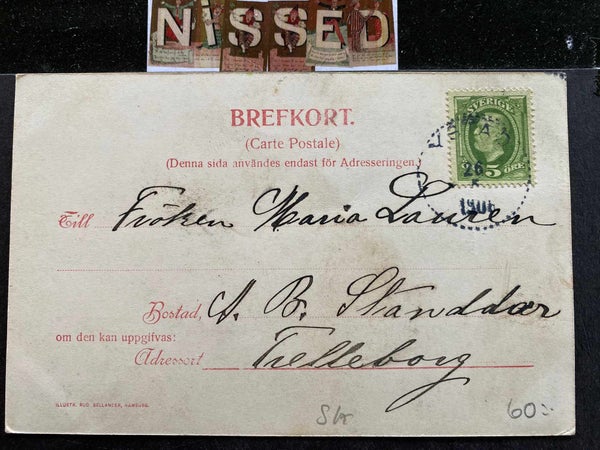 NiSSED
BREFKORT.
(Carte Postale)
(Denna sida användes endast för Adresseringen.)
SVERIGE
5 ÖRE
26
1906
Till Fröken Maria Lauren
Bostad, A. B. Standdær
om den kan uppgifvas:
Adressort Trelleborg
ILLUSTR. RUD. BELLANDER, HAMBURG.
Sk
60:-